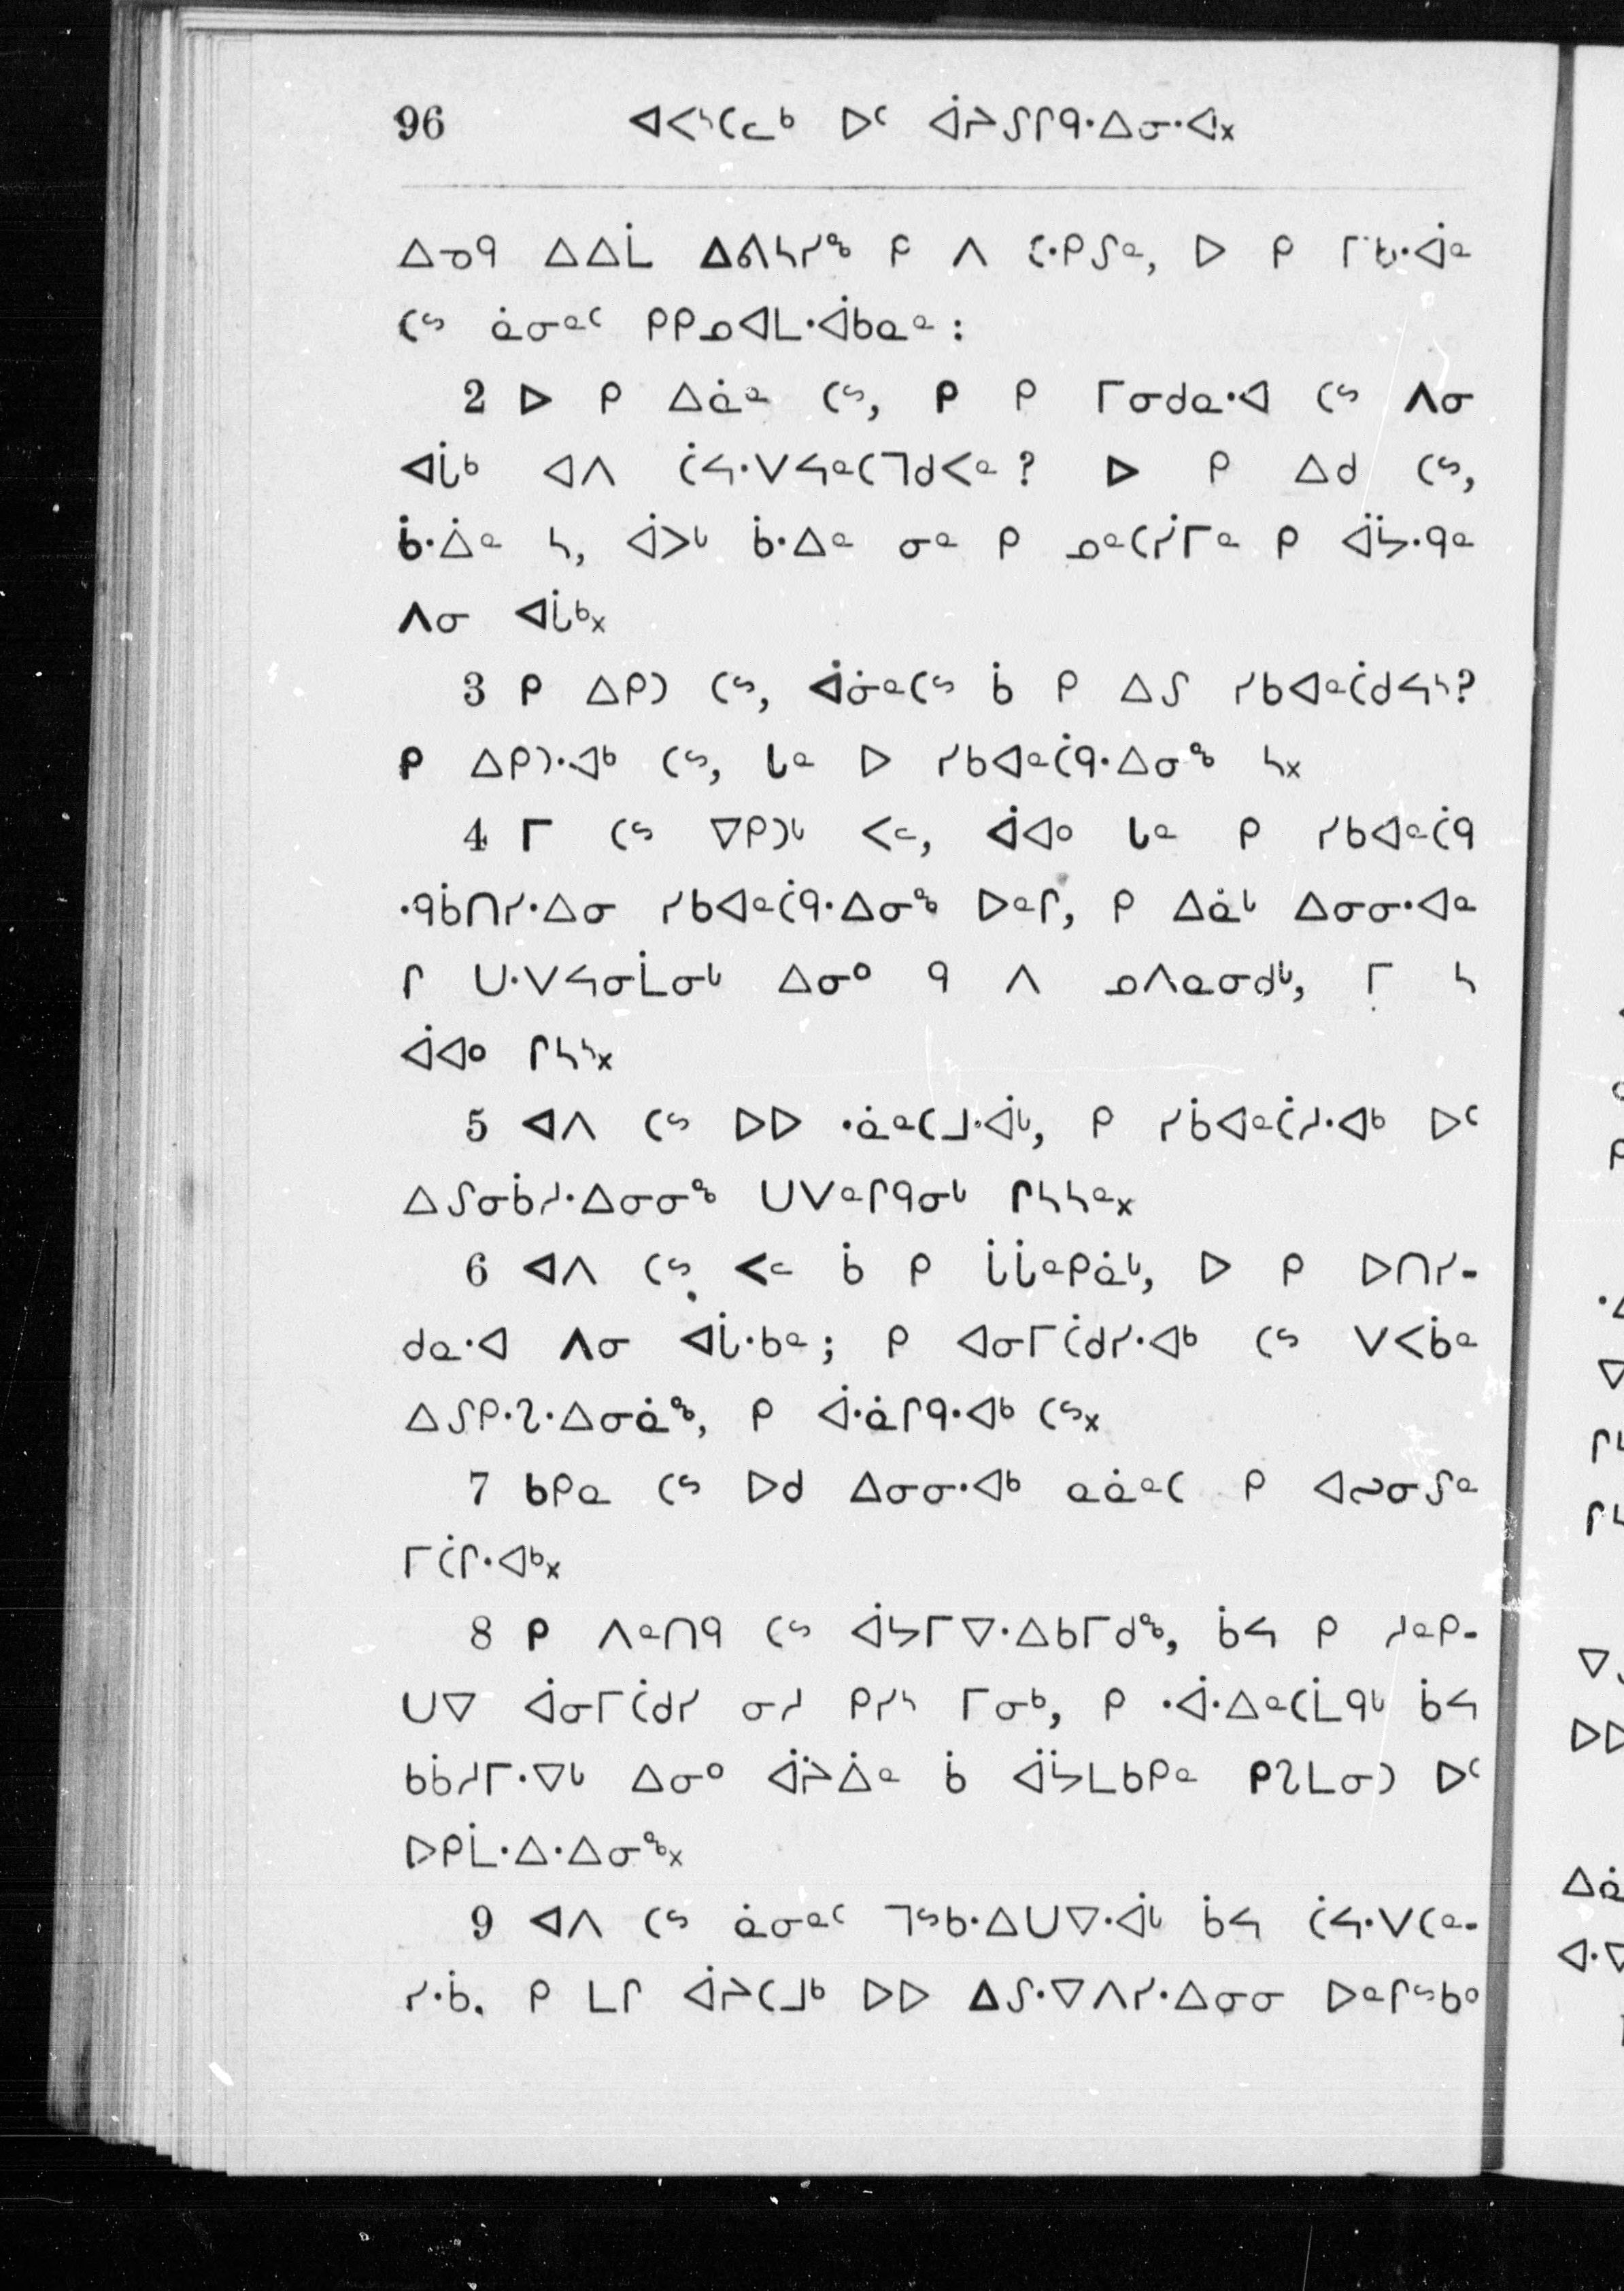 96 ᐊᐸᔅᑕᓚᒃ ᐅᑦ ᐋᔨᔑᒋᑫᐧᐃᓂᐧᐊ᙮
ᐃᓓᑫ ᐃᐃᒫ ᐃᕕᓴᓯᒄ ᑭ ᐱ ᑕᐧᑭᔑᓐ, ᐅ ᑭ ᒥᑲᐧᐋᓐ
ᑕᔥ ᓈᓂᓐᑦ ᑭᑭᓄᐊᒪᐧᐋᑲᓇᓐ :
2 ᐅ ᑭ ᐃᓈᓐ ᑕᔥ, ᑭ ᑭ ᒥᓂᑯᓇᐧᐊ ᑕᔥ ᐱᓂ
ᐊᒑᒃ ᐊᐱ ᑖᔦᐧᐯᔦᓐᑕᒧᑯᐸᓐ? ᐅ ᑭ ᐃᑯ ᑕᔥ,
ᑳᐧᐄᓐ ᓴ, ᐋᐳᒡ ᑳᐧᐃᓐ ᓂᓐ ᑭ ᓄᓐᑕᓰᒥᓐ ᑭ ᐋᔭᐧᑫᓐ
ᐱᓂ ᐊᒑᒃ᙮
3 ᑭ ᐃᑭᑐ ᑕᔥ, ᐋᓃᓐᑕᔥ ᑳ ᑭ ᐃᔑ ᓯᑲᐊᓐᑖᑯᔦᔅ?
ᑭ ᐃᑭᑐᐧᐊᒃ ᑕᔥ, ᒐᓐ ᐅ ᓯᑲᐊᓐᑖᑫᐧᐃᓂᒄ ᓴ᙮
4 ᒥ ᑕᔥ ᐁᑭᑐᒡ ᐸᓪ, ᐋᐊᐤ ᒐᓐ ᑭ ᓯᑲᐊᓐᑖᑫ
ᐧᑫᑳᑎᓯᐧᐃᓂ ᓯᑲᐊᓐᑖᑫᐧᐃᓂᒄ ᐅᓐᒋ, ᑭ ᐃᓈᒡ ᐃᓂᓂᐧᐊᓐ
ᒋ ᑌᐧᐯᔦᓂᒫᓂᒡ ᐃᓂᐤ ᑫ ᐱ ᓄᐱᓇᓂᑯᒡ, ᒥ ᓴ
ᐋᐊᐤ ᒋᓴᔅ᙮
5 ᐊᐱ ᑕᔥ ᐅᐅ ᐧᓈᓐᑕᒧᐧᐋᒡ, ᑭ ᓯᑳᐊᓐᑖᓱᐧᐊᒃ ᐅᑦ
ᐃᔑᓂᑳᓱᐧᐃᓂᓂᒄ ᑌᐯᓐᒋᑫᓂᒡ ᒋᓴᓴᓐ᙮
6 ᐊᐱ ᑕᔥ ᐸᓪ ᑳ ᑭ ᒑᒑᓐᑭᓈᒡ, ᐅ ᑭ ᐅᑎᓯ-
ᑯᓇᐧᐊ ᐱᓂ ᐊᒑᐧᑲᓐ; ᑭ ᐊᓂᒥᑖᑯᓯᐧᐊᒃ ᑕᔥ ᐯᐸᑳᓐ
ᐃᔑᑭᐧᔐᐧᐃᓂᓈᒄ, ᑭ ᐋᐧᓈᒋᑫᐧᐊᒃ ᑕᔥ᙮
7 ᑲᑭᓇ ᑕᔥ ᐅᑯ ᐃᓂᓂᐧᐊᒃ ᓇᓈᓐᑕ ᑭ ᐊᔓᓂᔑᓐ
ᒥᑖᒋᐧᐊᒃ᙮
8 ᑭ ᐱᓐᑎᑫ ᑕᔥ ᐋᔭᒥᐁᐧᐃᑲᒥᑯᒄ, ᑳᔦ ᑭ ᓱᓐᑭ-
ᑌᐁ ᐋᓂᒥᑖᑯᓯ ᓂᓱ ᑭᓯᔅ ᒥᓂᒃ, ᑭ ᐧᐋᐧᐃᓐᑕᒫᑫᒡ ᑳᔦ
ᑲᑳᓱᒥᐧᐁᒡ ᐃᓂᐤ ᐋᔨᐄᓐ ᑳ ᐋᔭᒪᑲᑭᓐ ᑭᔐᒪᓂᑐ ᐅᑦ
ᐅᑭᒫᐧᐃᐧᐃᓂᒄ᙮
9 ᐊᐱ ᑕᔥ ᓈᓂᓐᑦ ᒣᔥᑲᐧᐃᑌᐁᐧᐋᒡ ᑳᔦ ᑖᔦᐧᐯᑕᓐ-
ᓯᐧᑳ, ᑭ ᒪᒋ ᐋᔨᑕᒧᒃ ᐅᐅ ᐃᔑᐧᐁᐱᓯᐧᐃᓂᓂ ᐅᓐᒋᔥᑲᐤ